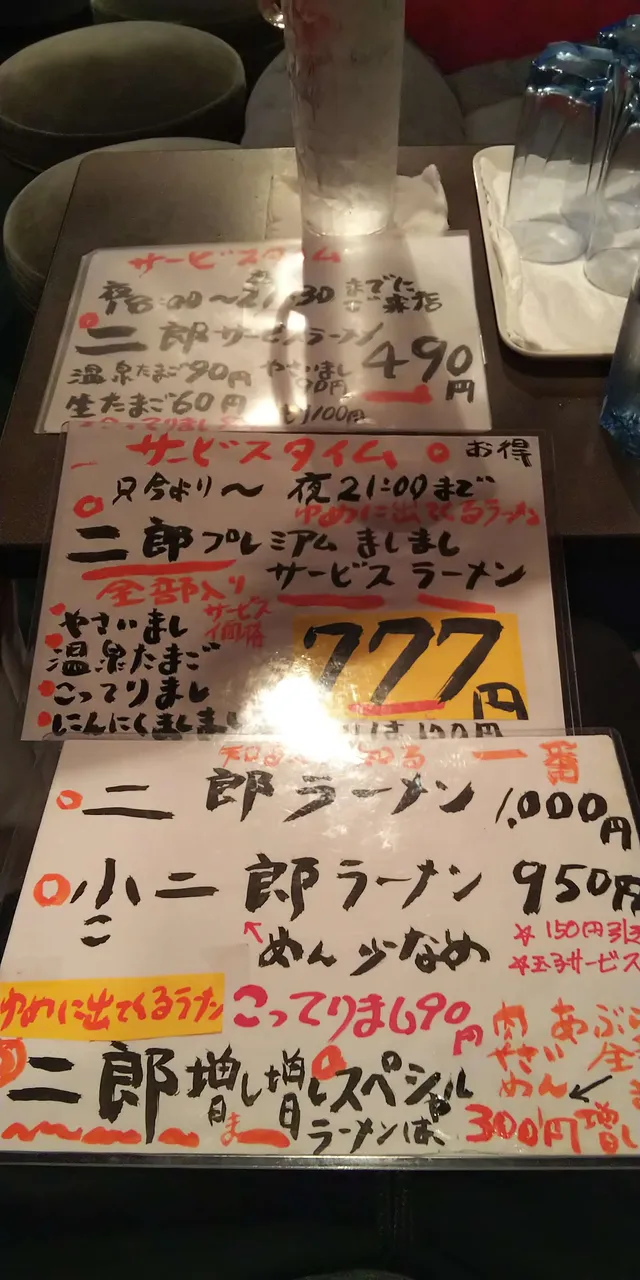 サービスタイム
夜8:00〜21:30 までに ご来店
二郎サービスラーメン 490円
温泉たまご90円 やさいまし
生たまご60円
サービスタイム お得
只今より〜 夜21:00まで
ゆめに出てくるラーメン
二郎プレミアム ましまし
全部入り サービス ラーメン
やさいまし サービス価格
温泉たまご 777円
こってりまし
にんにくましまし
知る 一番
二郎ラーメン 1,000円
小二郎ラーメン 950円
こ
めん少なめ ☆150円引き
☆玉子サービス
ゆめに出てくるラーメン こってりまし90円
肉 あぶら
やさい 全
めん
二郎増し増しスペシャル
ま ラーメンは 300円増し